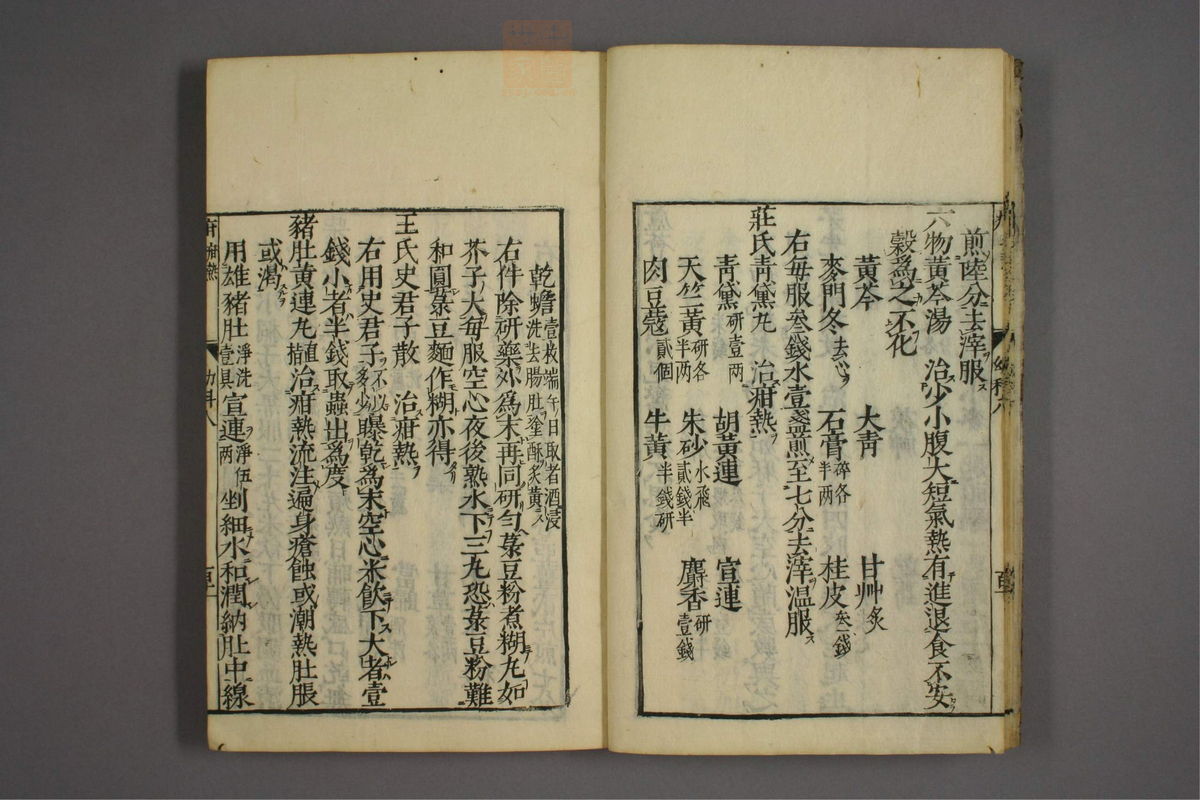 煎陸分去滓服
六物黃芩湯 治少小腹大短氣熱有進退食不安
穀爲之不花
黃芩 大靑 甘艸炙
麥門冬去心 石膏碎各半両 桂皮叁錢
右每服叁錢水壹盞煎至七分去滓温服
莊氏靑黛丸 治疳熱
靑黛研壹両 胡黃連 宣連
天竺黃研各半両 朱砂水飛貳錢半 麝香研壹錢
肉豆蔻貳個 牛黃半錢研
幼科八
乾蟾壹枚端午日取者酒浸洗去腸肚塗酥炙黃
右件除研藥外爲末再同研勻菉豆粉煮糊丸如
芥子大每服空心夜後熟水下三丸恐菉豆粉難
和圓菉豆麵作糊亦得
王氏史君子散 治疳熱
右用史君子不以多少曝乾爲末空心米飲下大者壹
錢小者半錢取蟲出爲度
豬肚黃連丸 治疳熱流注遍身瘡蝕或潮熱肚脹
或渴
用雄豬肚淨洗壹具宣連淨伍両剉細水和潤納肚中線
幼科八